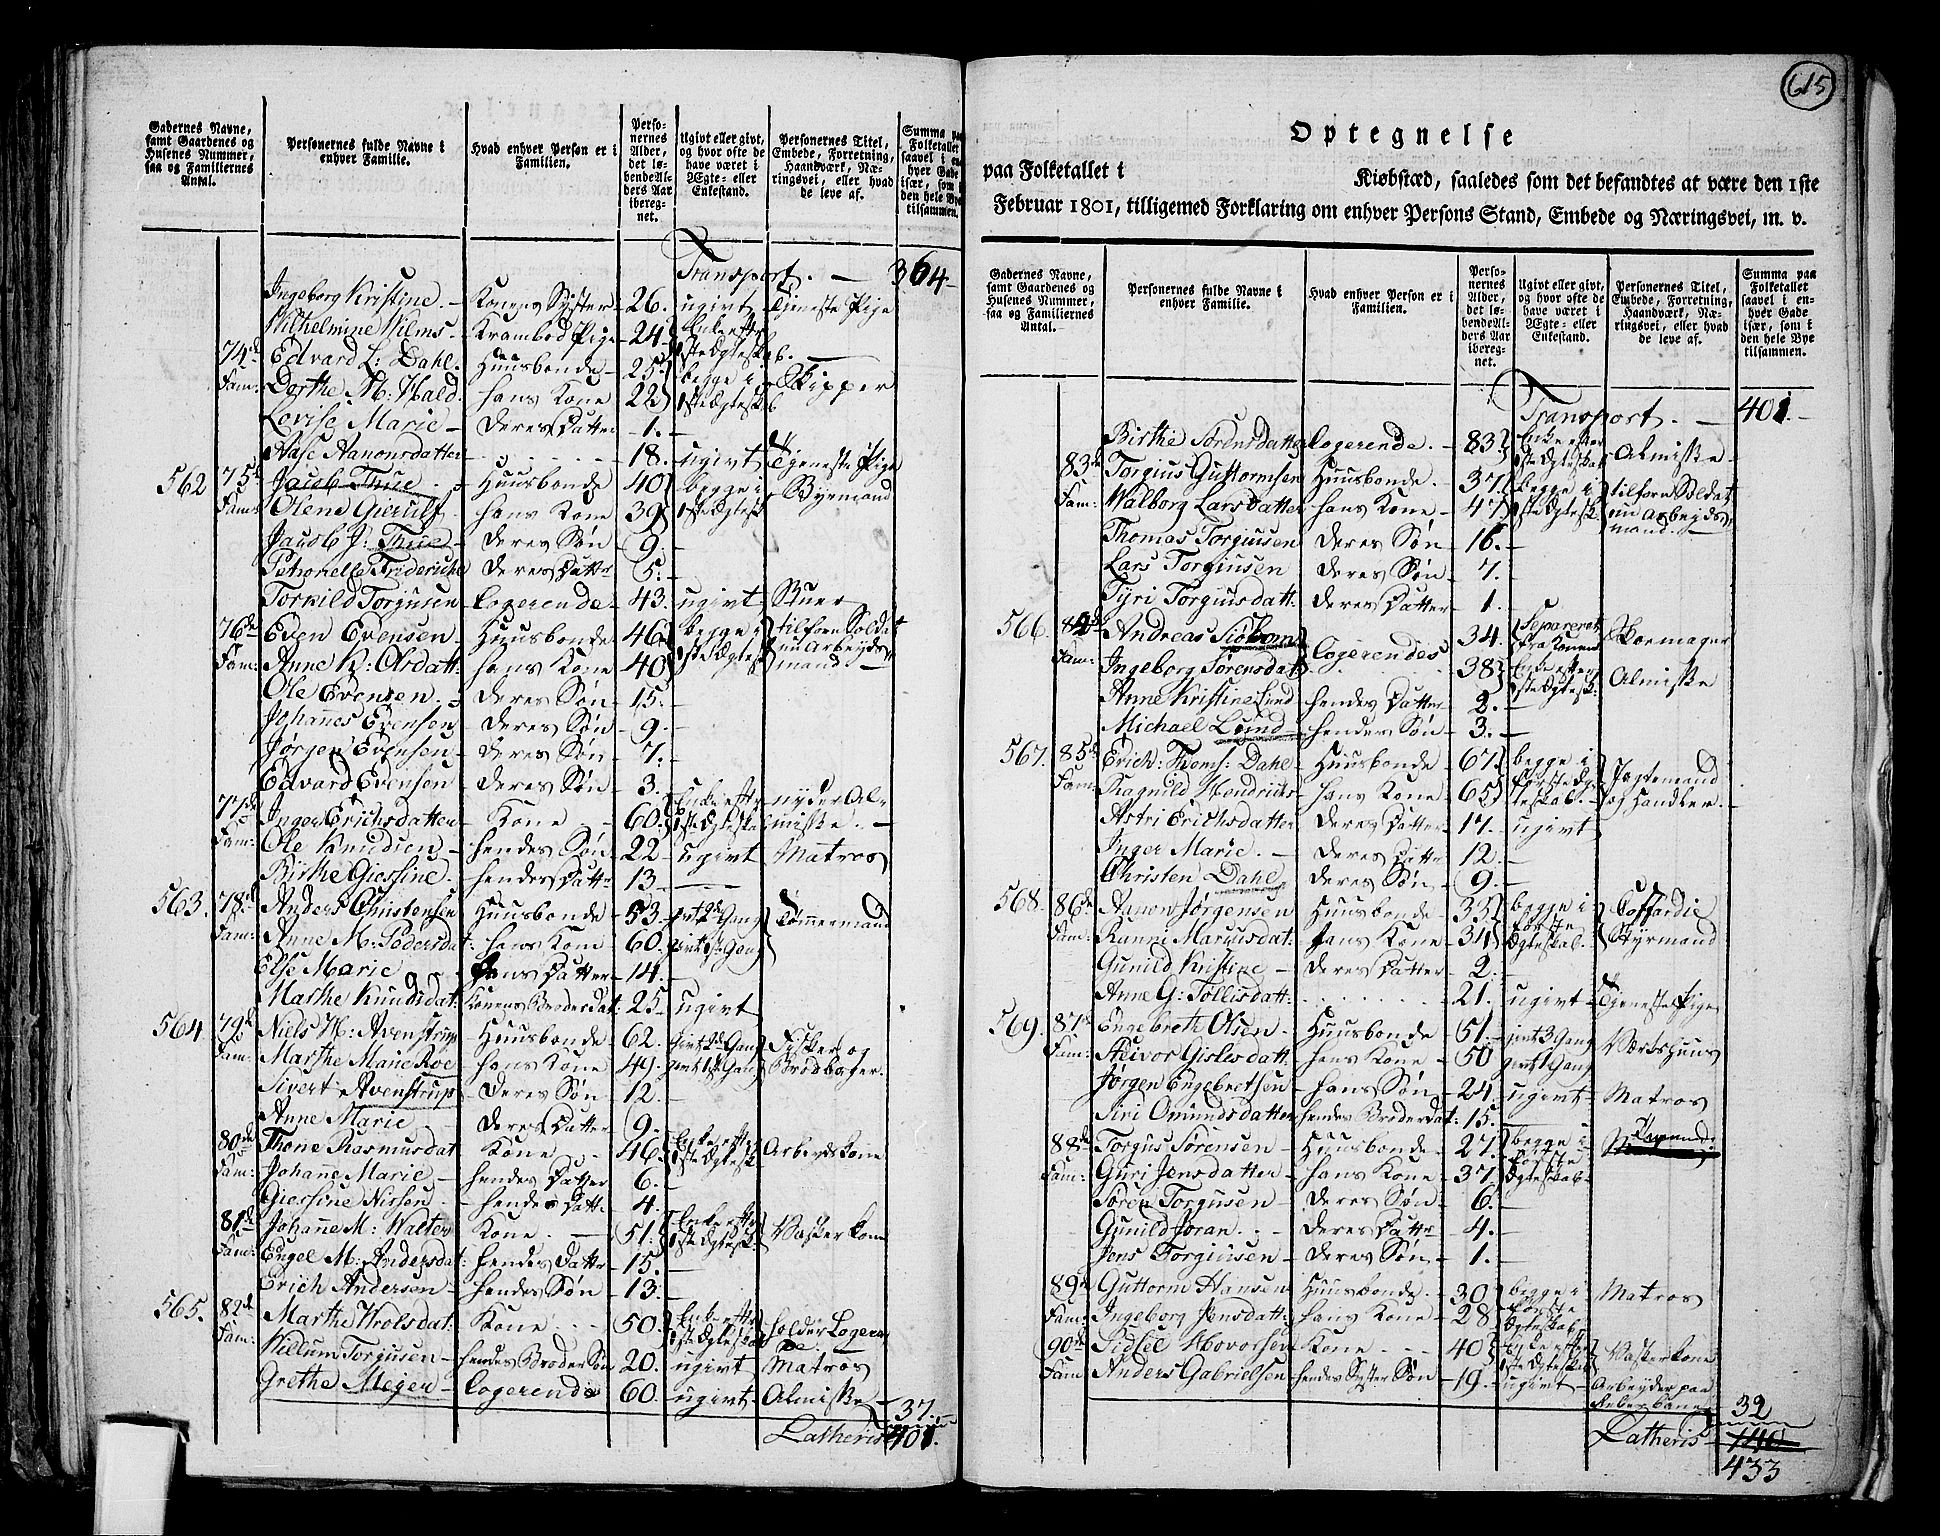 Gadernes Navne, samt Gaardenes og Husenes Nummer, saa og Familiernes Antal.
Personernes fulde Navne i enhver Familie.
Hvad enhver Person er i Familien.
Personernes Alder, det løbende Alders Aar iberegnet.
Ugivt eller givt, og hvor ofte de have været i Ægte- eller Enkestand.
Personernes Titel, Embede, Forretning, Haandværk, Næringsvei, eller hvad de leve af.
Summa paa Folketallet saavel i enhver Gade især, som i den hele Bye tilsammen.
Transport. — 364
Ingeborg Kristine. — Konens Syster — 26. ugivt Tjeneste Pige
Wilhelmine Wilms — Krambod Pige — 24. Enke eftr 1ste Ægteskab.
74de Fam: Edvard L: Dahl. Huusbonde — 25 begge i 1ste Ægteskab Skipper
Dorthe M: Wald. hans Kone 22
Lovise Marie — deres Datter — 1. —
Aase Aanonsdatter 18. ugivt Tjeneste Pige
562 75de Fam: Jacob Thue. Huusbonde 40 begge i 1ste Ægtesk Byemand
Olene Gierulf. hans Kone 39
Jacob J: Thue — deres Søn 9. —
Petronelle Frideriche deres Dattr 5. —
Torkild Torgusen — Logerende — 43. ugivt Stuer
76de Fam: Even Evensen — Huusbonde 46 begge i 1ste Ægtesk tilforn Soldat nu Arbeydsmand
Anne K: Olsdatt: hans Kone 40
Ole Evensen. deres Søn — 15. —
Johannes Evensen deres Søn — 9. —
Jørgen Evensen — deres Søn — 7. —
Edvard Evensen — deres Søn — 3. —
77de Fam: Inger Erichsdatter — Kone — 60. Enke eftr 1ste Ægteskab nyder Almisse. —
Ole Knudsen — hendes Søn — 22 — ugivt — Matros
Birthe Giessine. — hendes Dattr 13 —
563. 78de Fam: Anders Christensen Huusbonde — 53. givt 2de Gang Tømmermand
Anne M: Pedersdat: hans Kone — 60. givt 1ste Gang
Else Marie hans Datter — 14. —
Marthe Knudsdat: Konens Broderdat: 25. ugivt
564 79de Fam: Niels H: Avenstrup Huusbonde 62. givt 2de Gang Fisker og Brødbager.
Marthe Marie Roe hans Kone — 49. givt 1ste Gang
Sivert Avenstrup deres Søn — 12. —
Anne Marie deres Datter — 9. —
80de Fam: Thone Rasmusdat Kone — 46. Enke eftr 1ste Ægtesk Arbeidskone
Johanne Marie — hendes Datter 6. —
Giessine Nissen — hendes Datt: 4. —
81de Fam: Johanne M: Walter Kone. — 51. Enke eftr 1ste Ægtesk: Vasker Kone
Engel M: Andersdat: hendes Dattr 15. —
Erich Andersen — hendes Søn — 13. —
565. 82de Fam: Marthe Trolsdat: Kone 50. Enke eftr 1ste Ægteskab holder Logerende.
Willum Torgusen — hendes Broder Søn 20. ugivt Matros
Grethe Meyer — Logerende 60. ugivt — Almisse —
37.
Lateris 401.
615
Optegnelse
paa Folketallet i Kiøbstæd, saaledes som det befandtes at være den 1ste
Februar 1801, tilligemed Forklaring om enhver Persons Stand, Embede og Næringsvei, m. v.
Gadernes Navne, samt Gaardenes og Husenes Nummer, saa og Familiernes Antal.
Personernes fulde Navne i enhver Familie.
Hvad enhver Person er i Familien.
Personernes Alder, det løbende Alders Aar iberegnet.
Ugivt eller givt, og hvor ofte de have været i Ægte- eller Enkestand.
Personernes Titel, Embede, Forretning, Haandværk, Næringsvei, eller hvad de leve af.
Summa paa Folketallet saavel i enhver Gade især, som i den hele Bye tilsammen.
Transport. — 401. —
Birthe Sørensdatter Logerende. — 83. Enke efter 1ste Ægteskab Almisse. —
83de Fam: Torgius Guttormsen Huusbonde. — 37. begge i 1ste Ægtesk. tilforn Soldat nu Arbejdsmand. —
Walborg Larsdatter hans Kone — 47
Thomas Torgiusen deres Søn — 16. —
Lars Torgiusen deres Søn — 7. —
Tyri Torgiusdatt: deres Datter — 1. —
566. 84de Fam: Andreas Siøborn Logerendes 34. Separeret fra Konen Skoemager
Ingeborg Sørensdat 38 Enke efter 1ste Ægtesk: Almisse
Anne Kristine Lund — hendes Datter — 2. —
Michael Lund — hendes Søn — 3. —
567. 85de Fam: Erich: Thoms: Dahl — Huusbonde — 67 begge i første Ægteskab. Jagtemand og Handler. —
Ragnild Hendrichs — hans Kone — 65
Astri Erichsdatter deres Datter — 17. — ugivt
Inger Marie. — deres Dattr 12. —
Christen Dahl deres Søn — 9. —
568. 86de Fam: Aanon Jørgensen Huusbonde — 35 begge i første Ægteskab. Coffardie Styrmand
Ranni Mariusdat: hans Kone — 34
Gunild Kristine — deres Datter — 2. —
Anne G: Tollisdatt: 21. ugivt — Tjeneste Pige
569. 87de Fam: Engebreth Olsen. — Huusbonde — 51. givt 3 Gang Værtshuus
Aivor Gislesdatt — hans Kone — 50 givt 1 Gang
Jørgen Engebretsen — hans Søn — 24. ugivt — Matros
Siri Omundsdatter hendes Broderdat: 15. —
88de Fam: Torgus Sørensen — Huusbonde — 27. begge i første Ægteskab.
Guri Jensdatter — hans Kone — 37.
Søren Torgusen — deres Søn — 6. —
Gunild Joran — deres Dattr 4. —
Jens Torgiusen — deres Søn — 1. —
89de Fam: Guttorm Hansen Huusbonde. — 30 begge i første Ægteskab. Matros
Ingeborg Jensdatt: hans Kone — 28
90de Fam Sidsel Hovolsen Kone 40 Enke efter 1ste Ægteskab Vasker Kone
Anders Gabrielsen hendes Syster Søn — 19. — ugivt — Arbeyder paa Reberbanen
32
Lateris — 440
433